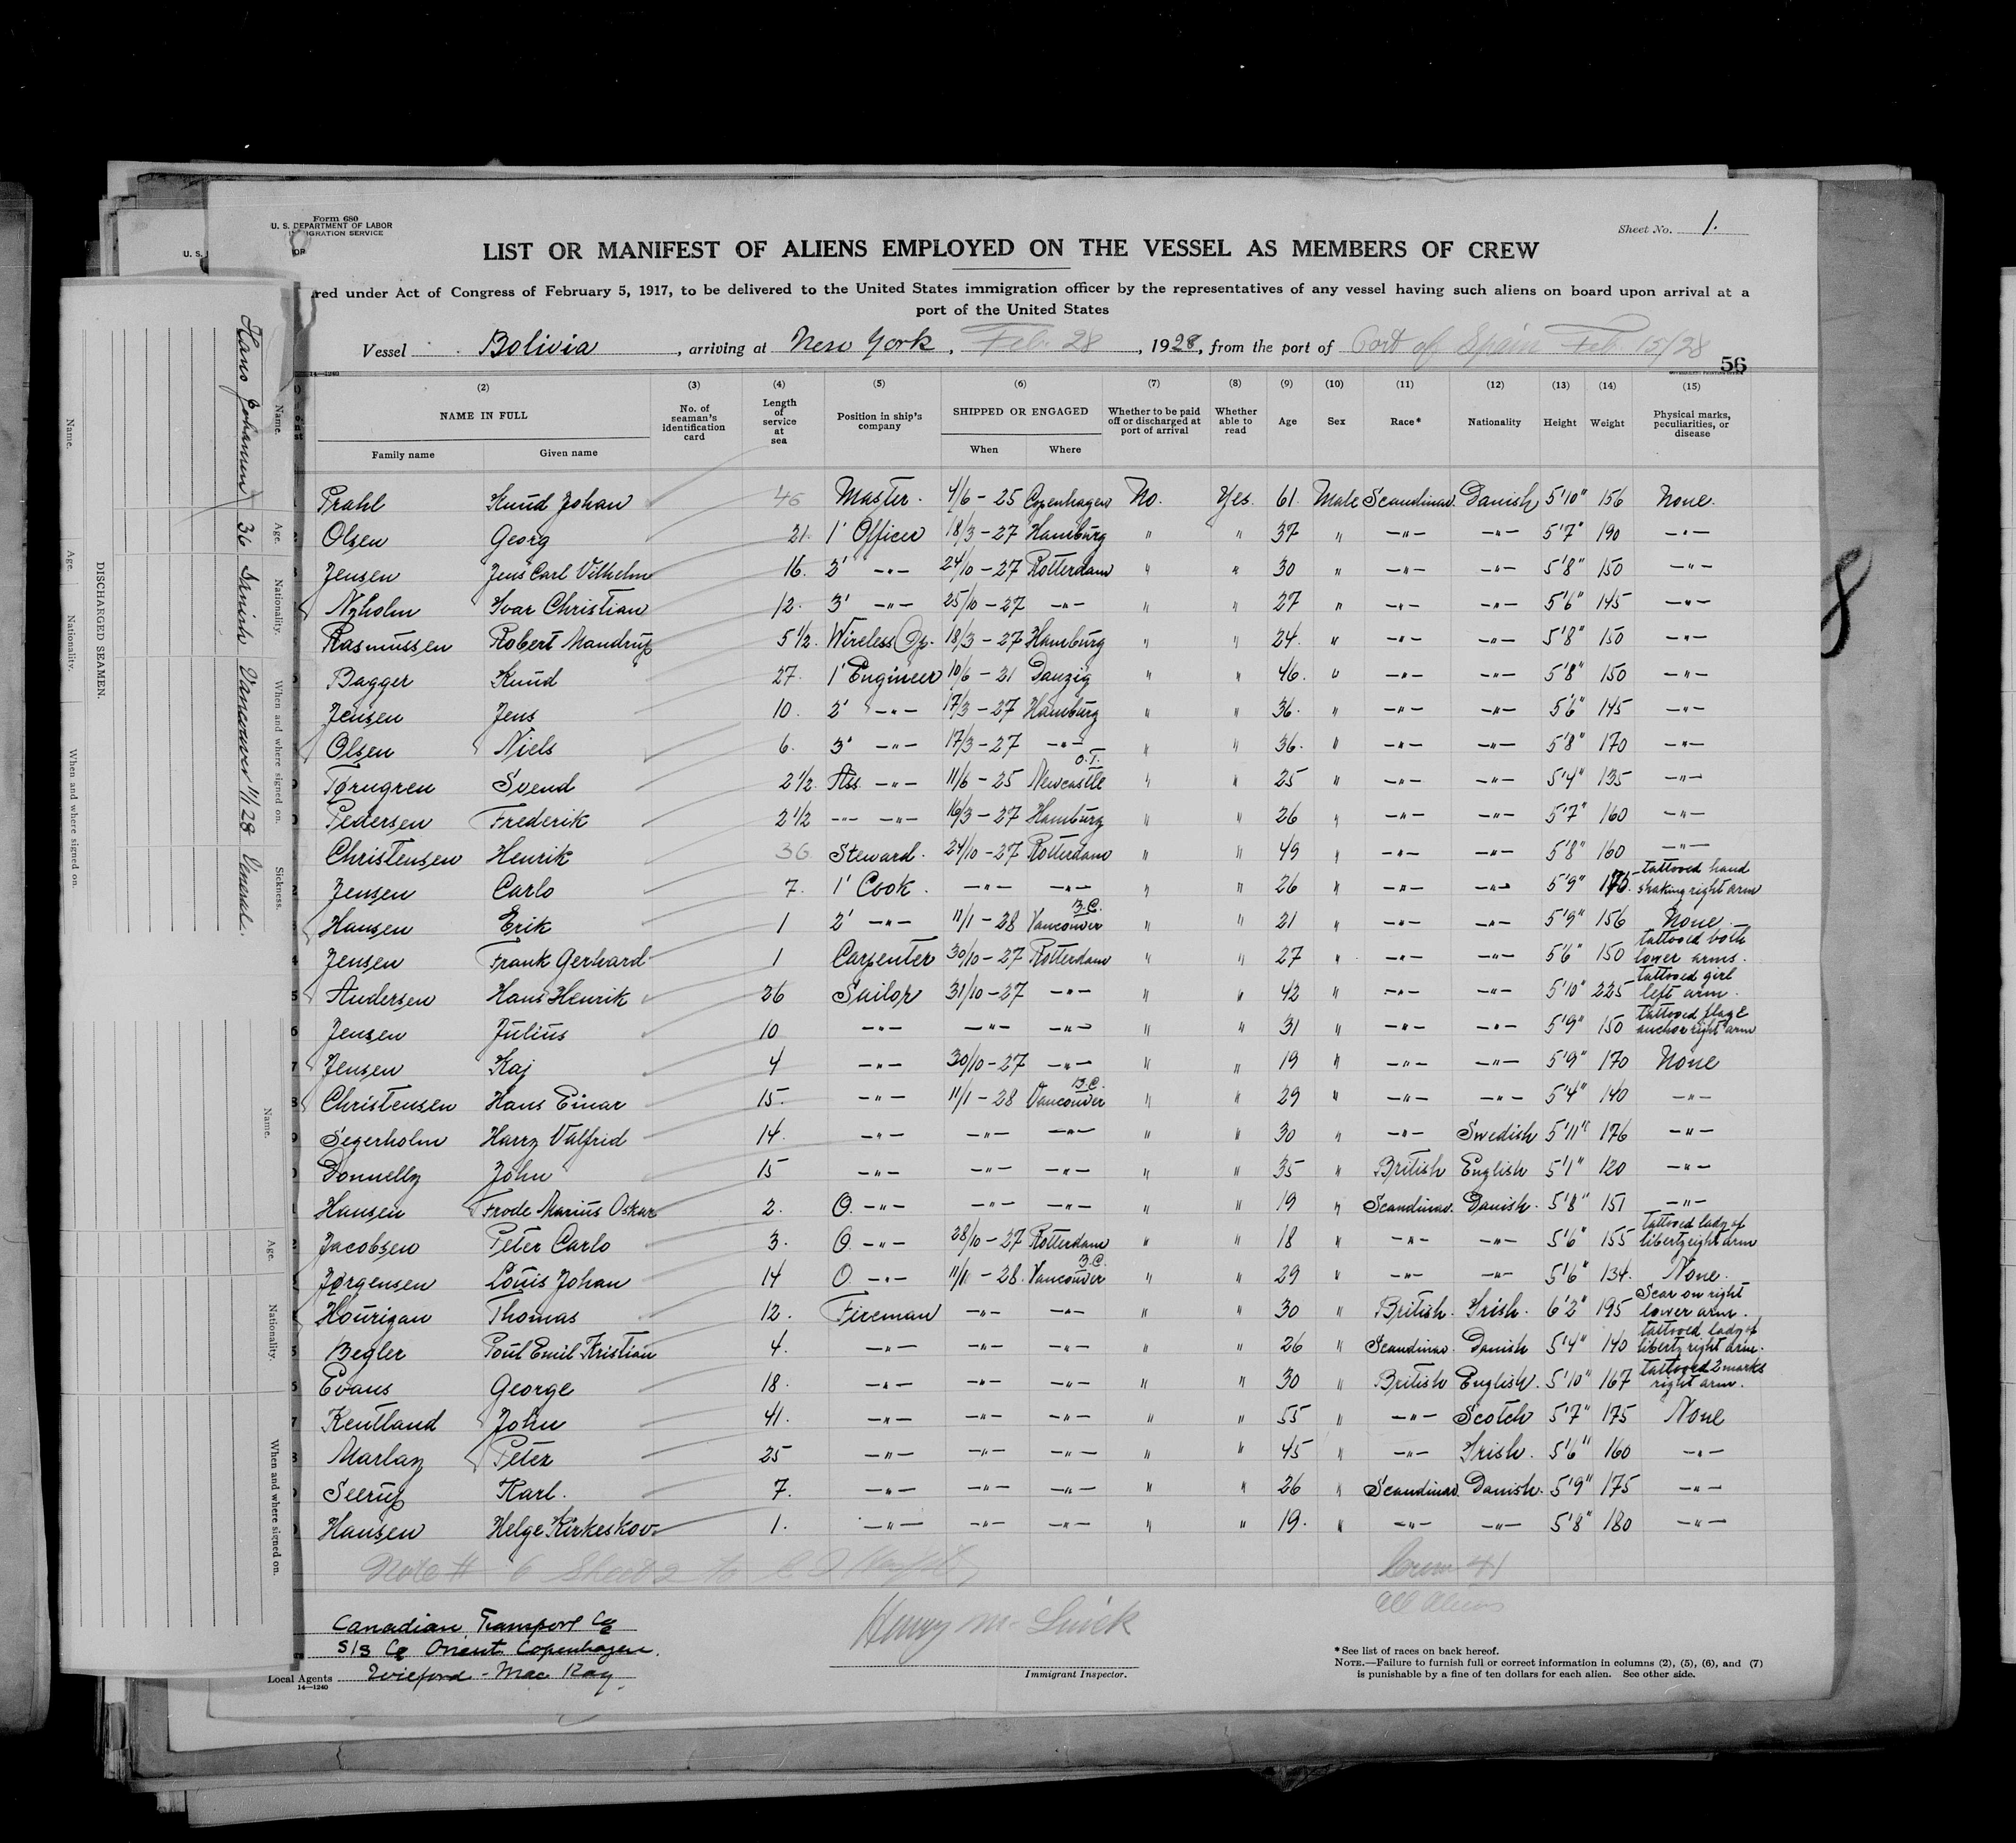 Form 680
U. S. DEPARTMENT OF LABOR
IMMIGRATION SERVICE
Sheet No. 1.
LIST OR MANIFEST OF ALIENS EMPLOYED ON THE VESSEL AS MEMBERS OF CREW
red under Act of Congress of February 5, 1917, to be delivered to the United States immigration officer by the representatives of any vessel having such aliens on board upon arrival at a
port of the United States
Vessel Bolivia, arriving at New York, Feb. 28, 1928, from the port of Port of Spain Feb 15/28
56
14—1240
(2) (3) (4) (5) (6) (7) (8) (9) (10) (11) (12) (13) (14) (15)
NAME IN FULL No. of seaman's identification card Length of service at sea Position in ship's company SHIPPED OR ENGAGED Whether to be paid off or discharged at port of arrival Whether able to read Age Sex Race* Nationality Height Weight Physical marks, peculiarities, or disease
Family name Given name When Where
Prahl Knud Johan 46 Master. 4/6-25 Copenhagen No. Yes. 61. Male Scandinav. Danish 5'10" 156 None.
Olsen Georg 21. 1' Officer 18/3-27 Hamburg " " 37 " -"- -"- 5'7" 190 -"-
Jensen Jens Carl Vilhelm 16. 2' -"- 24/10-27 Rotterdam " " 30 " -"- -"- 5'8" 150 -"-
Nyholm Ivar Christian 12. 3' -"- 25/10-27 -"- " " 27 " -"- -"- 5'6" 145 -"-
Rasmussen Robert Mandrup 5 1/2. Wireless Op. 18/3-27 Hamburg " " 24. " -"- -"- 5'8" 150 -"-
Bagger Knud 27. 1' Engineer 10/6-21 Danzig " " 46. " -"- -"- 5'8" 150 -"-
Jensen Jens 10. 2' -"- 17/3-27 Hamburg " " 36. " -"- -"- 5'6" 145 -"-
Olsen Niels 6. 3' -"- 17/3-27 -"- " " 36. " -"- -"- 5'8" 170 -"-
Tørngren Svend 2 1/2. Ass. -"- 11/6-25 Newcastle O.T. " " 25 " -"- -"- 5'4" 135 -"-
Pedersen Frederik 2 1/2 -"- -"- 16/3-27 Hamburg " " 26 " -"- -"- 5'7" 160 -"-
Christensen Henrik 36 Steward. 24/10-27 Rotterdam " " 49 " -"- -"- 5'8" 160 -"-
Jensen Carlo 7. 1' Cook. -"- -"- " " 26 " -"- -"- 5'9" 175. tattooed hand shaking right arm
Hansen Erik 1 2' -"- 11/1-28 Vancouver B.C. " " 21 " -"- -"- 5'9" 156 None.
Jensen Frank Gerhard 1 Carpenter 30/10-27 Rotterdam " " 27 " -"- -"- 5'6" 150 tattooed both lower arms.
Andersen Hans Henrik 26 Sailor 31/10-27 -"- " " 42 " -"- -"- 5'10" 225 tattooed girl left arm.
Jensen Julius 10 -"- -"- -"- " " 31 " -"- -"- 5'9" 150 tattooed flag & anchor right arm
Jensen Kaj 4 -"- 30/10-27 -"- " " 19 " -"- -"- 5'9" 170 None
Christensen Hans Einar 15. -"- 11/1-28 Vancouver B.C. " " 29 " -"- -"- 5'4" 140 -"-
Segerholm Harry Valfrid 14. -"- -"- -"- " " 30 " -"- Swedish 5'11" 176 -"-
Donnelly John 15 -"- -"- -"- " " 35 " British English 5'1" 120 -"-
Hansen Frode Marius Oskar 2. O. -"- -"- -"- " " 19 " Scandinav. Danish. 5'8" 151 -"-
Jacobsen Peter Carlo 3. O. -"- 28/10-27 Rotterdam " " 18 " -"- -"- 5'6" 155 Tattooed lady of liberty eight arm
Jørgensen Louis Johan 14 O -"- 11/1-28. Vancouver B.C. " " 29 " -"- -"- 5'6" 134. None.
Hourigan Thomas 12. Fireman -"- -"- " " 30 " British. Irish. 6'2" 195 Scar on right lower arm.
Begler Poul Emil Kristian 4. -"- -"- -"- " " 26 " Scandinav. Danish 5'4" 140 tattooed lady of liberty right arm.
Evans George 18. -"- -"- -"- " " 30 " British English. 5'10" 167 tattooed 2 marks right arm.
Kentland John 41. -"- -"- -"- " " 55 " -"- Scotch 5'7" 175 None
Marlay Peter 25 -"- -"- -"- " " 45 " -"- Irish. 5'6" 160 -"-
Seerup Karl. 7. -"- -"- -"- " " 26 " Scandinav. Danish. 5'9" 175 -"-
Hansen Helge Kirkeskov 1. -"- -"- -"- " " 19. " -"- -"- 5'8" 180 -"-
Note # 6 Sheet 2 to
Crew 41
All aliens
Canadian Transport Co
S/S Co Orient Copenhagen.
Local Agents Mac Kay
14—1240
Henry
Immigrant Inspector.
*See list of races on back hereof.
NOTE.—Failure to furnish full or correct information in columns (2), (5), (6), and (7)
is punishable by a fine of ten dollars for each alien. See other side.
DISCHARGED SEAMEN.
Name. Age. Nationality. When and where signed on. Sickness.
Hans Johansen 36 Danish Vancouver 11/1 28 Veneral.
Name. Age. Nationality. When and where signed on.
Name. Age. Nationality. When and where signed on.
8